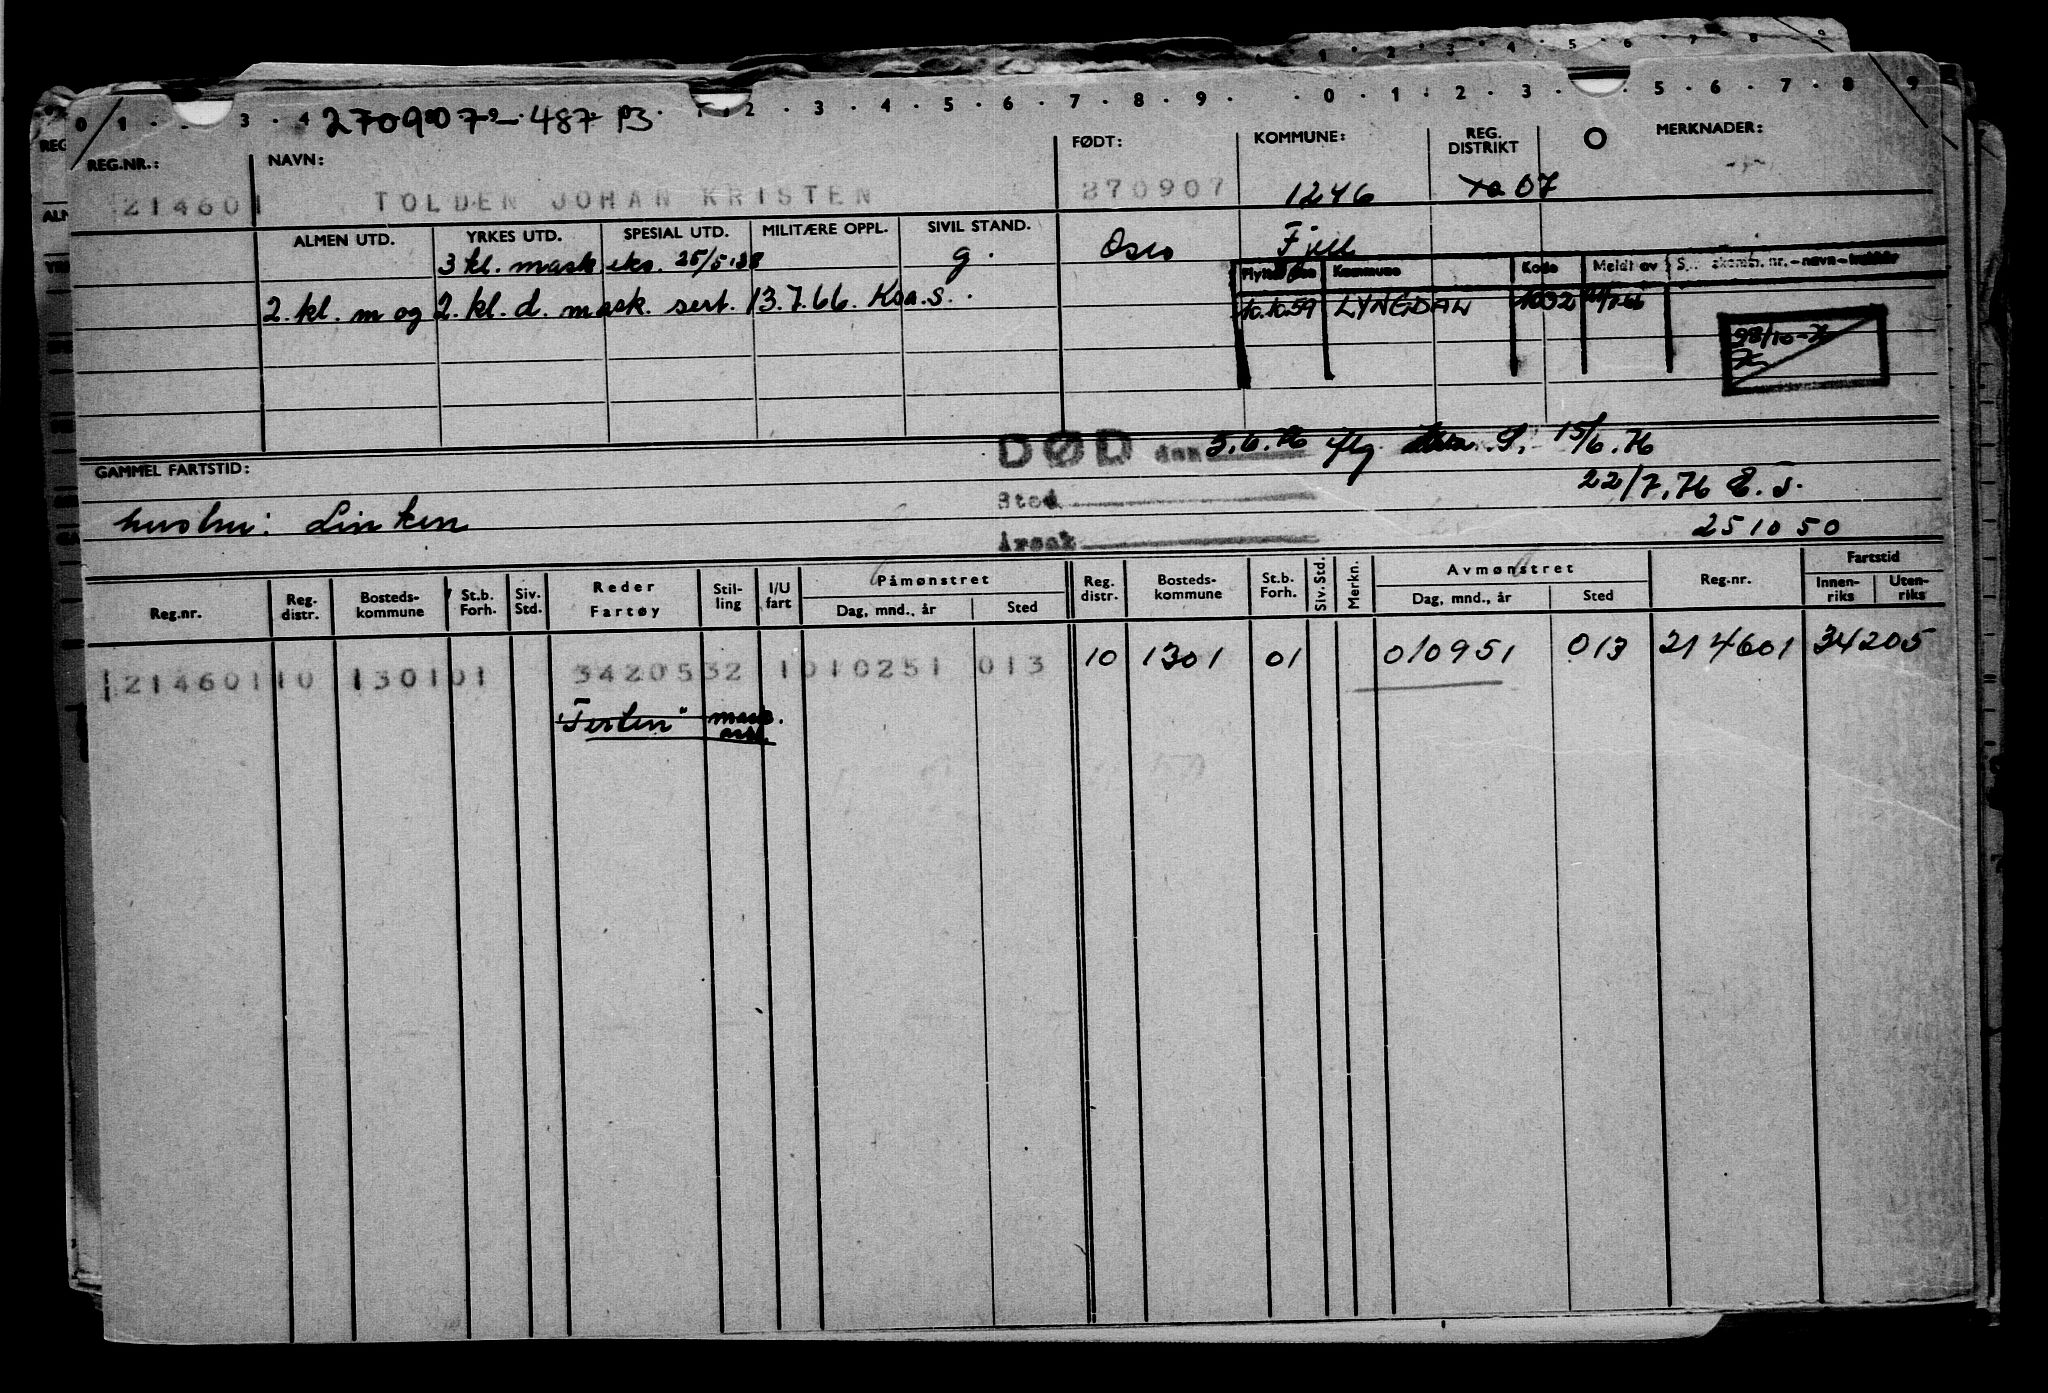 0 1 3 4 2 3 4 5 6 7 8 9 0 1 2 3 5 6 7 8 9
270907 - 487 B
REG.NR.: NAVN: FØDT: KOMMUNE: REG. DISTRIKT O MERKNADER:
214601 TOLDEN JOHAN KRISTEN 270907 1246 07
ALMEN UTD. YRKES UTD. SPESIAL UTD. MILITÆRE OPPL. SIVIL STAND. Oslo Fjell
3 kl. mask eks. 25/5 38 g.
Kommune Kode Meldt av
2. kl. m og 2. kl. d. mask. sert. 13.7.66. Koa.s.
10.10.59 LYNGDAL 1032
DØD den 5.6.76 iflg 15/6.76
GAMMEL FARTSTID:
Sted 22/7.76
hustru: Linken
Årsak 251050
Reg.nr. Reg. distr. Bosteds- kommune St.b. Forh. Siv. Std. Reder Fartøy Stil- ling I/U fart Påmønstret Dag, mnd., år Sted Reg. distr. Bosteds- kommune St.b. Forh. Siv. Std. Merkn. Avmønstret Dag, mnd., år Sted Reg.nr. Fartstid Innen- riks Uten- riks
214601 10 1301 01 34205 32 1 010251 013 10 1301 01 010951 013 214601 34205
"Ferlen" mask. ass.